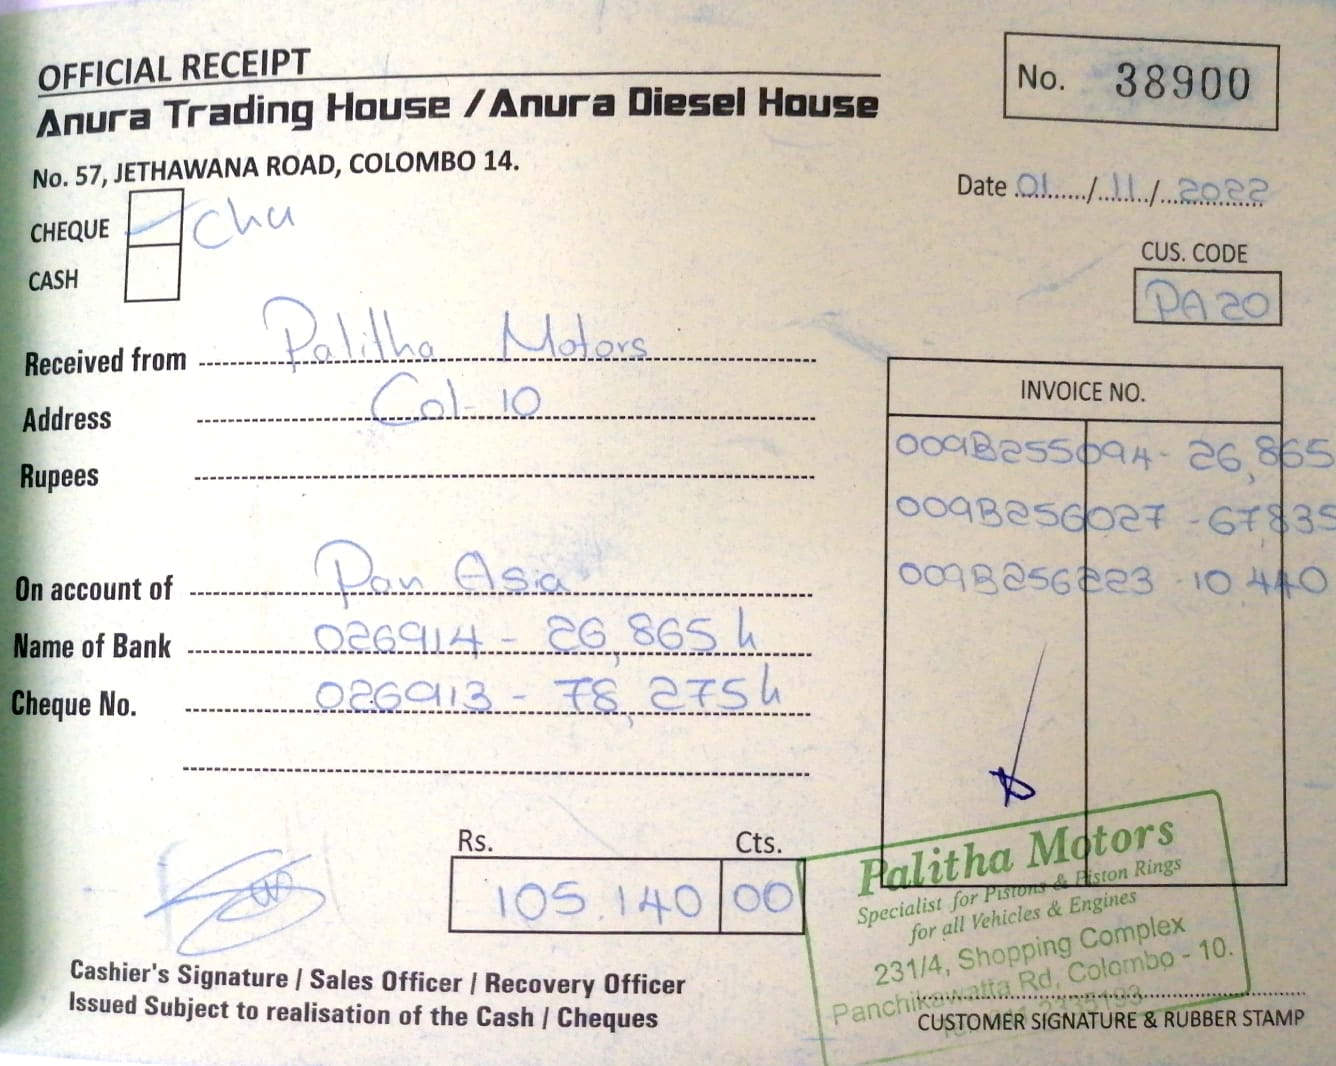 OFFICIAL RECEIPT
Anura Trading House / Anura Diesel House
No. 57, JETHAWANA ROAD, COLOMBO 14.
No. 38900
Date 01....../..11../...2022
CHEQUE Chu
CASH
CUS. CODE
PA20
Received from Palitha Motors
Address Col-10
Rupees
On account of Pan Asia
Name of Bank 026914 - 26,865 h
Cheque No. 026913 - 78,275 h
INVOICE NO.
009B255094 - 26,865
009B256027 - 67835
009B256223 - 10 440
Rs. Cts.
105.140 00
Cashier's Signature / Sales Officer / Recovery Officer
Issued Subject to realisation of the Cash / Cheques
Palitha Motors
Specialist for Pistons & Piston Rings
for all Vehicles & Engines
231/4, Shopping Complex
Panchikawatta Rd, Colombo - 10.
CUSTOMER SIGNATURE & RUBBER STAMP